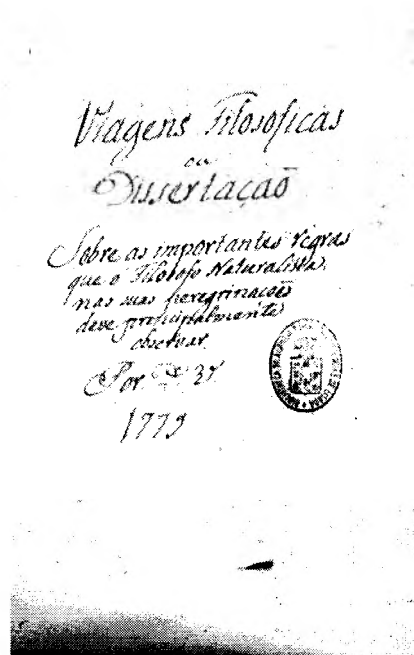 Viagens Filosoficas
ou
Dissertação
Sobre as importantes regras
que o Filosofo Naturalista,
nas suas peregrinações
deve principalmente
observar.
Por
1779